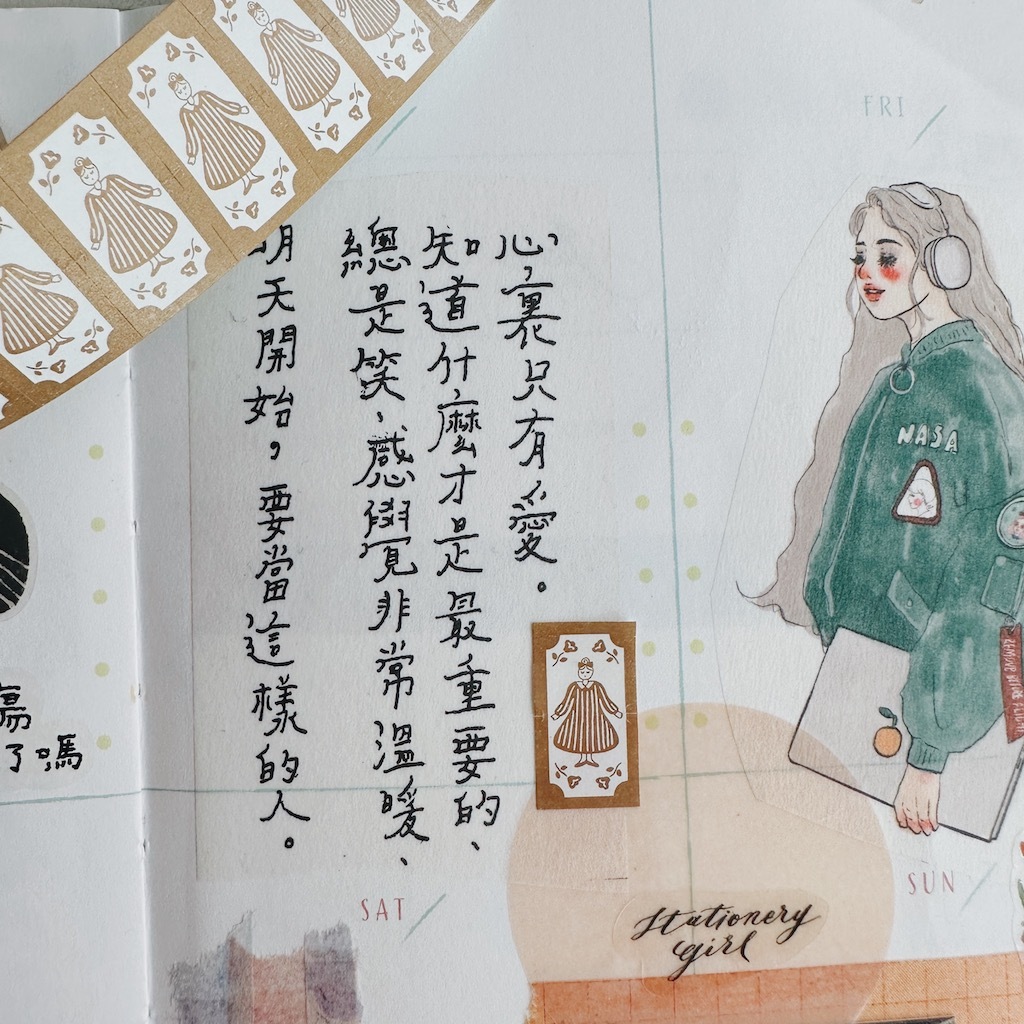 FRI
心裏只有愛。
知道什麼才是最重要的、
總是笑、感覺非常溫暖、
明天開始，要當這樣的人。
NASA
REMOVE BEFORE FLIGHT
傷
了嗎
SAT
SUN
Stationery
girl